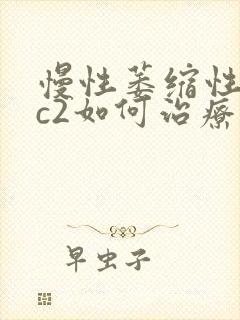 慢性萎缩性
c2如何治疗
早虫子